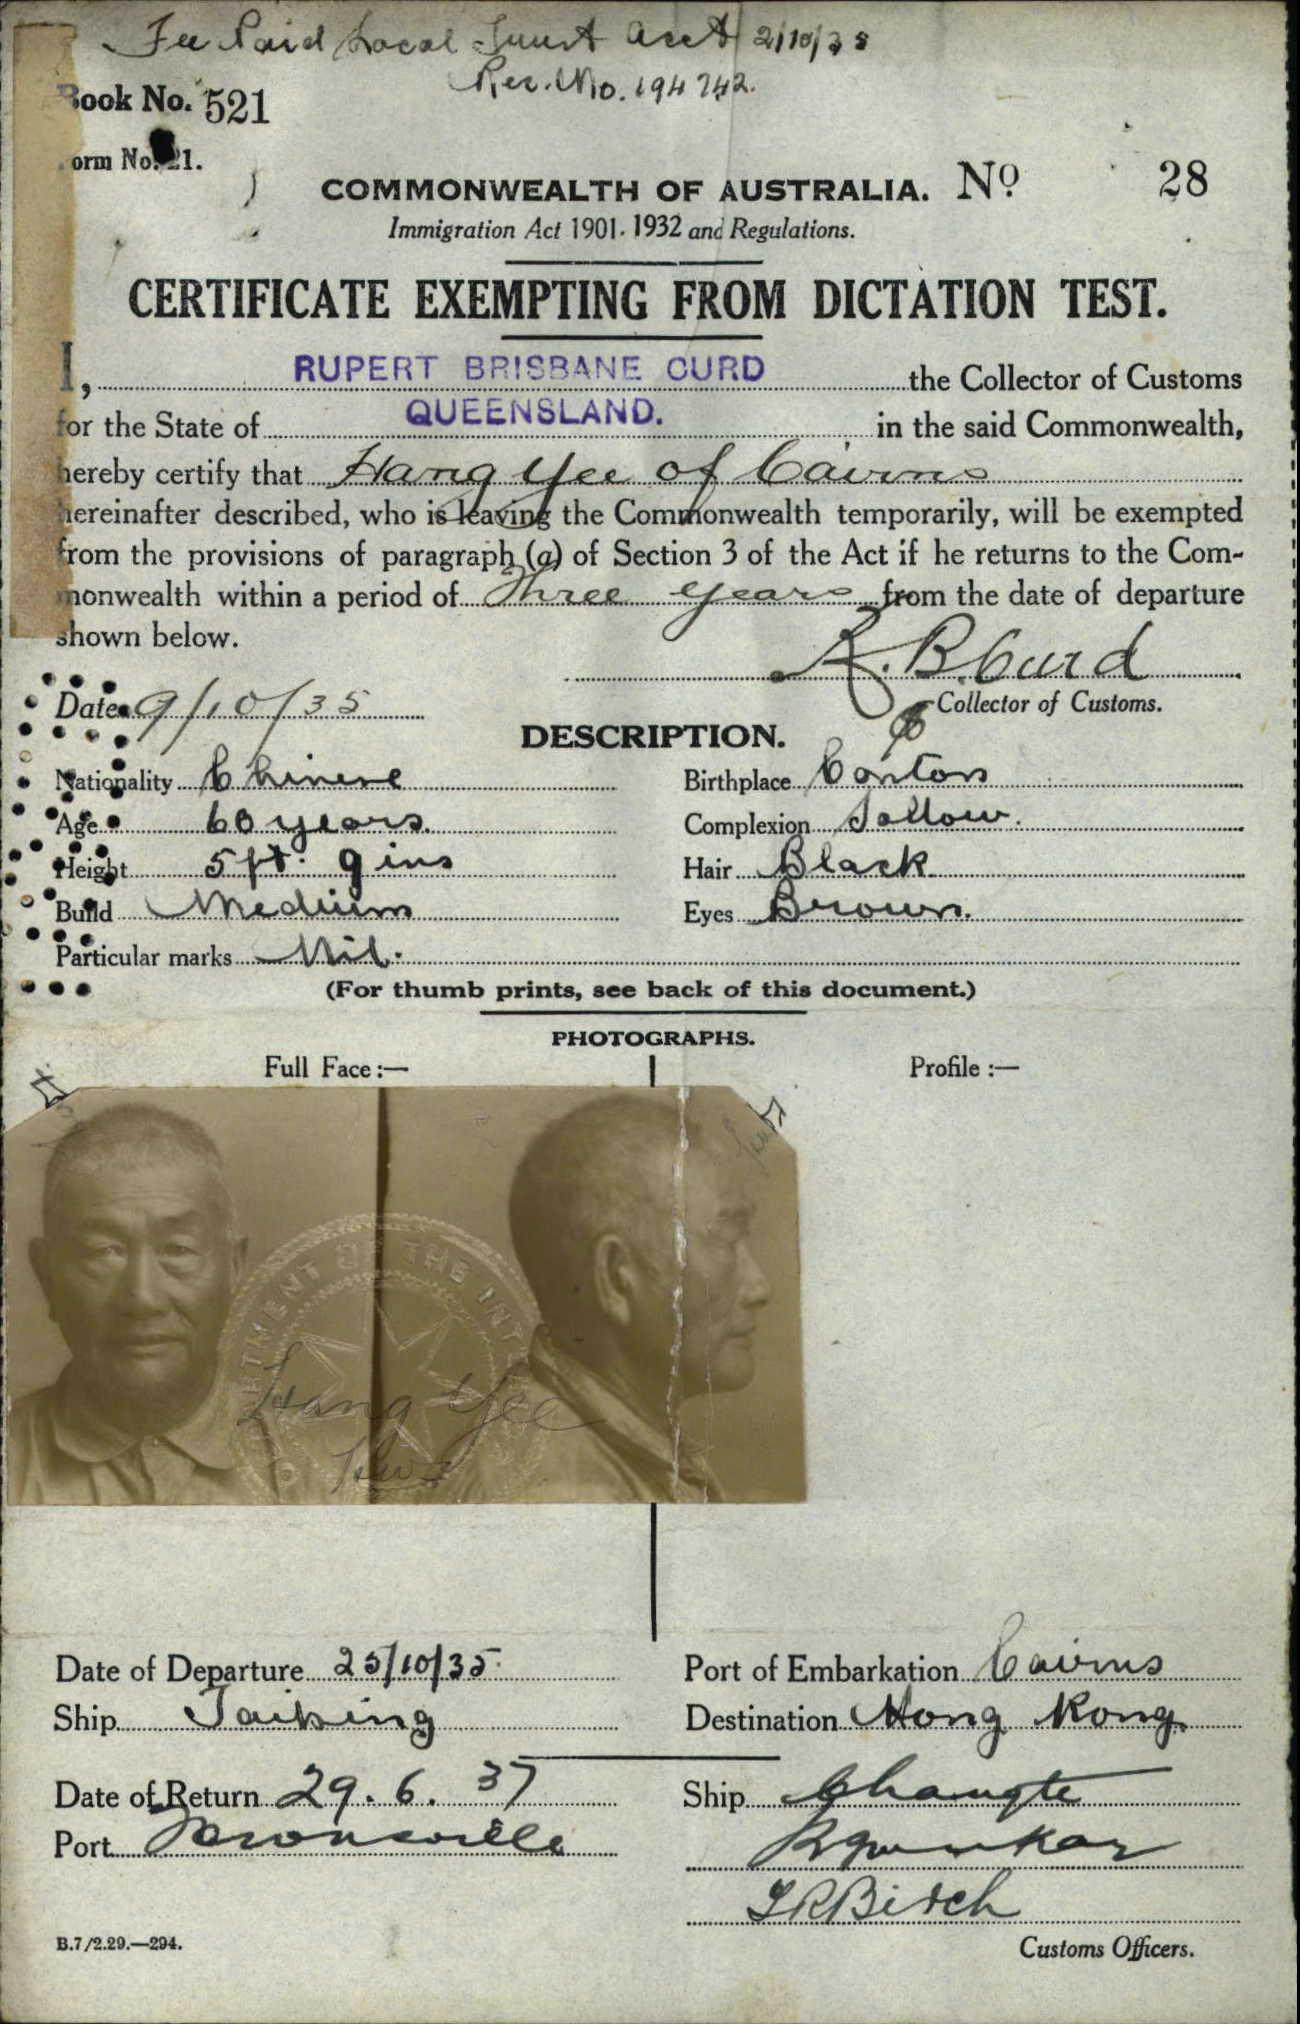 Fee Paid Local Trust Acct 2/10/35
Rec. No. 194742.
Book No. 521
orm No. 21.
COMMONWEALTH OF AUSTRALIA. No 28
Immigration Act 1901-1932 and Regulations.
CERTIFICATE EXEMPTING FROM DICTATION TEST.
I, RUPERT BRISBANE CURD the Collector of Customs
for the State of QUEENSLAND. in the said Commonwealth,
hereby certify that Hang Yee of Cairns
hereinafter described, who is leaving the Commonwealth temporarily, will be exempted
from the provisions of paragraph (a) of Section 3 of the Act if he returns to the Com-
monwealth within a period of Three years from the date of departure
shown below.
R. B. Curd
Date 9/10/35 Collector of Customs.
DESCRIPTION.
Nationality Chinese Birthplace Canton
Age 60 years. Complexion Sallow.
Height 5 ft. 9 ins Hair Black
Build Medium Eyes Brown.
Particular marks Nil.
(For thumb prints, see back of this document.)
PHOTOGRAPHS.
Full Face :— Profile :—
RTMENT OF THE INT
Hang Yee
Date of Departure 25/10/35 Port of Embarkation Cairns
Ship Taiping Destination Hong Kong
Date of Return 29. 6. 37 Ship Changte
Port Townsville
Birch
B.7/2.29.—294. Customs Officers.